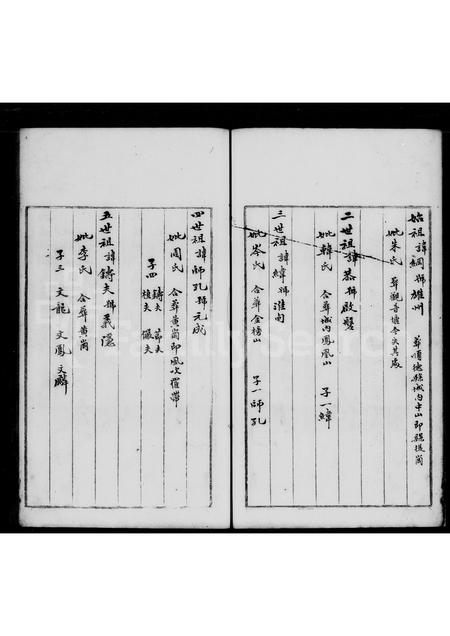 始祖諱綱號雄州 葬順德縣城內中山即提崗
妣朱氏 葬觀音塘今失其處
二世祖諱恭號啟賢
妣韓氏 合葬城內鳳凰山 子一緯
三世祖諱緯號淮南
妣岑氏 合葬金榜山 子一師孔
四世祖諱師孔號元成
妣周氏 合葬黃崗即風吹羅帶
子四 鑄夫 節夫
植夫 儼夫
五世祖諱鑄夫號義隱
妣李氏 合葬黃崗
子三 文龍 文鳳 文麟